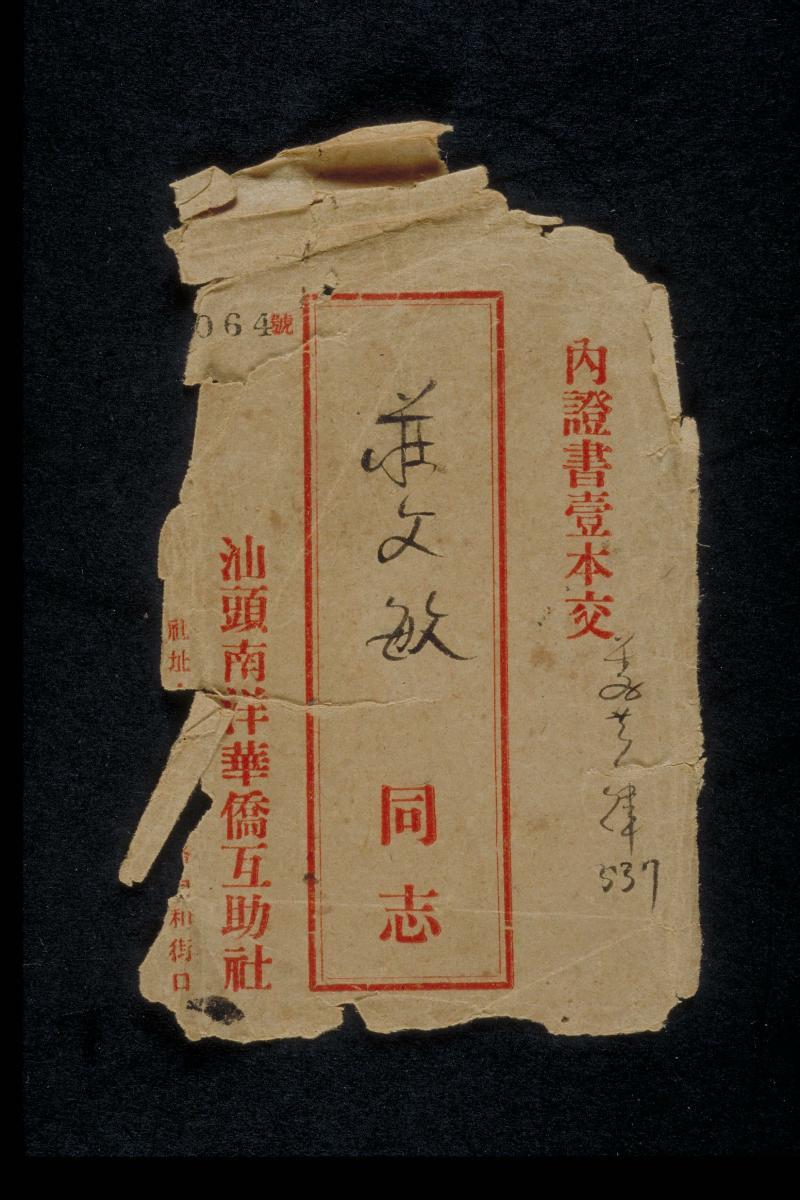 內證書壹本交
537
莊文敏 同志
064號
汕頭南洋華僑互助社
社址
和街口